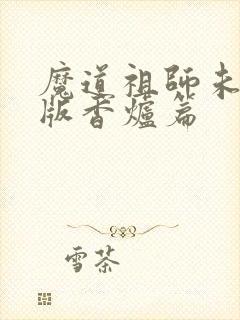 魔道祖師未
版香爐篇
雪茶